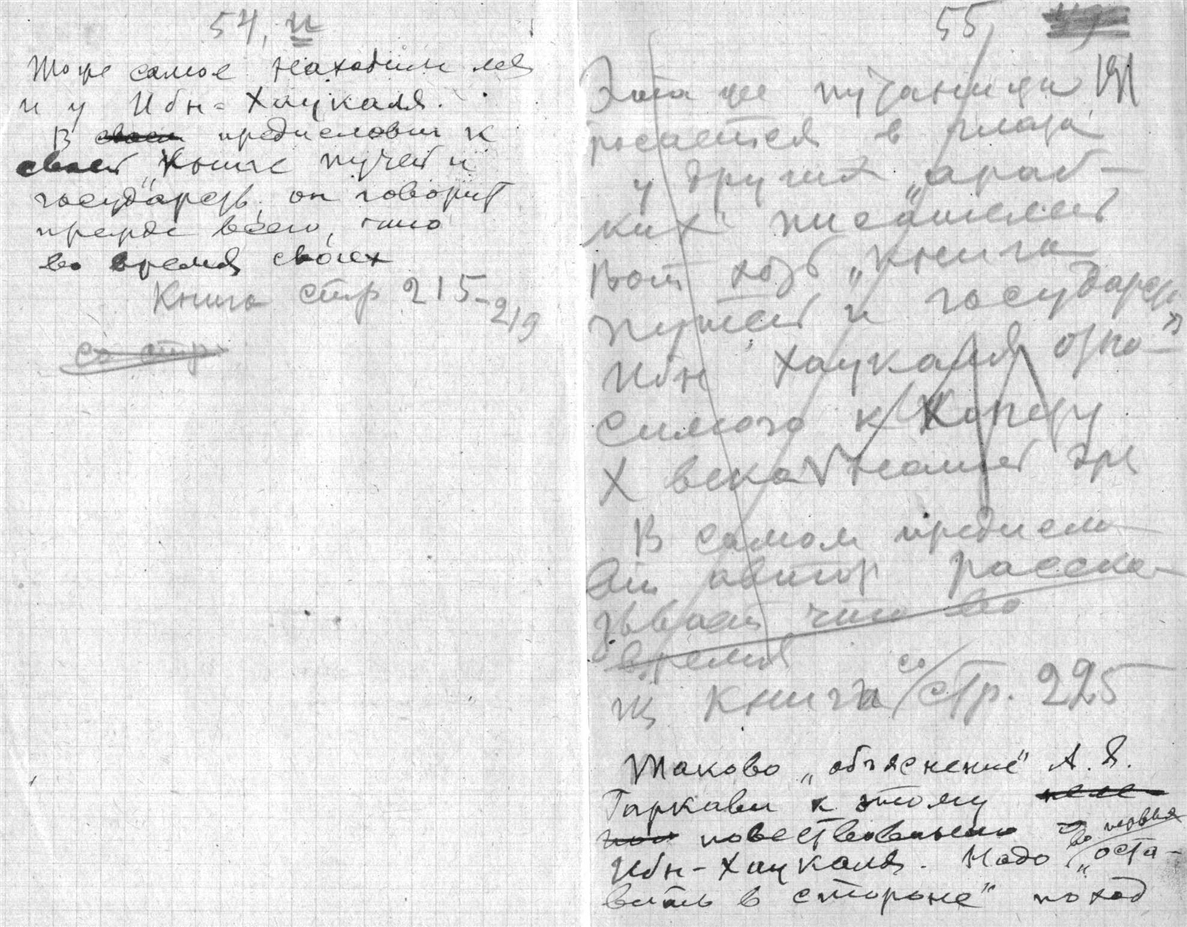 54, и
То же самое находим мы
и у Ибн-Хаукаля.
В своем предисловии к
своей „Книге путей и
государств" он говорит
прежде всего, что
во время своих
Книга стр 215-219
со стр
55
Эта же путаница
бросается в глаза
у других „араб-
ких писателей
Вот хоть „Книга
путей и государств"
Ибн Хаукаля отно-
симого к концу
X века нашей эры
В самом предисло-
вии автор расска-
зывает что во
время
Книга со стр. 225
Таково „объяснение" А. Я.
Гаркави к этому
повествованию
Ибн-Хаукаля. Надо во первых „оста-
вить в стороне" поход